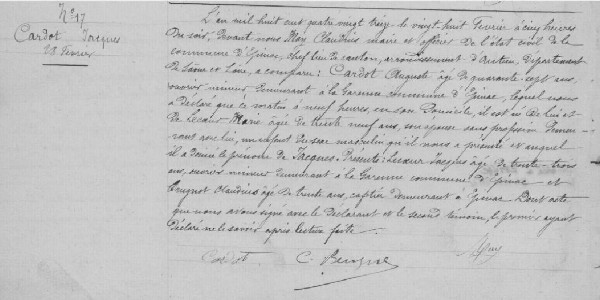 N° 17
Cardot Jacques
28 Février
L'an mil huit cent quatre vingt treize le vingt huit Février à cinq heures
du soir, devant nous Claudius maire et officier de l'état civil de la
commune d'Epinac, chef lieu de canton, arrondissement d'Autun, département
de Saône et Loire, a comparu : Cardot Auguste âgé de quarante ans,
ouvrier mineur demeurant à la Garenne commune d'Epinac, lequel nous
a déclaré que ce matin à neuf heures, en son Domicile, il est né de lui et
de Marie âgée de trente neuf ans, son épouse sans profession demeu-
rant avec lui, un enfant du sexe masculin qu'il nous a présenté et auquel
il a donné le prénom de Jacques. Présents : Jacques âgé de trente-trois
ans, ouvrier mineur demeurant à la Garenne commune d'Epinac et
Claudius âgé de trente ans, demeurant à Epinac. Dont acte
que nous avons signé avec le déclarant et le second témoin, le premier ayant
déclaré ne le savoir après lecture faite.
Cardot C.